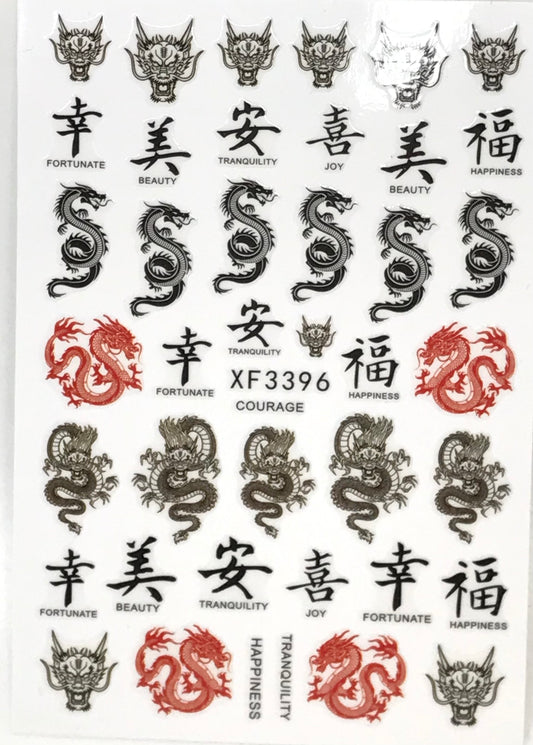 幸 美 安 喜 美 福
FORTUNATE BEAUTY TRANQUILITY JOY BEAUTY HAPPINESS
安
TRANQUILITY
幸 福
FORTUNATE HAPPINESS
XF3396
COURAGE
幸 美 安 喜 幸 福
FORTUNATE BEAUTY TRANQUILITY JOY FORTUNATE HAPPINESS
HAPPINESS
TRANQUILITY